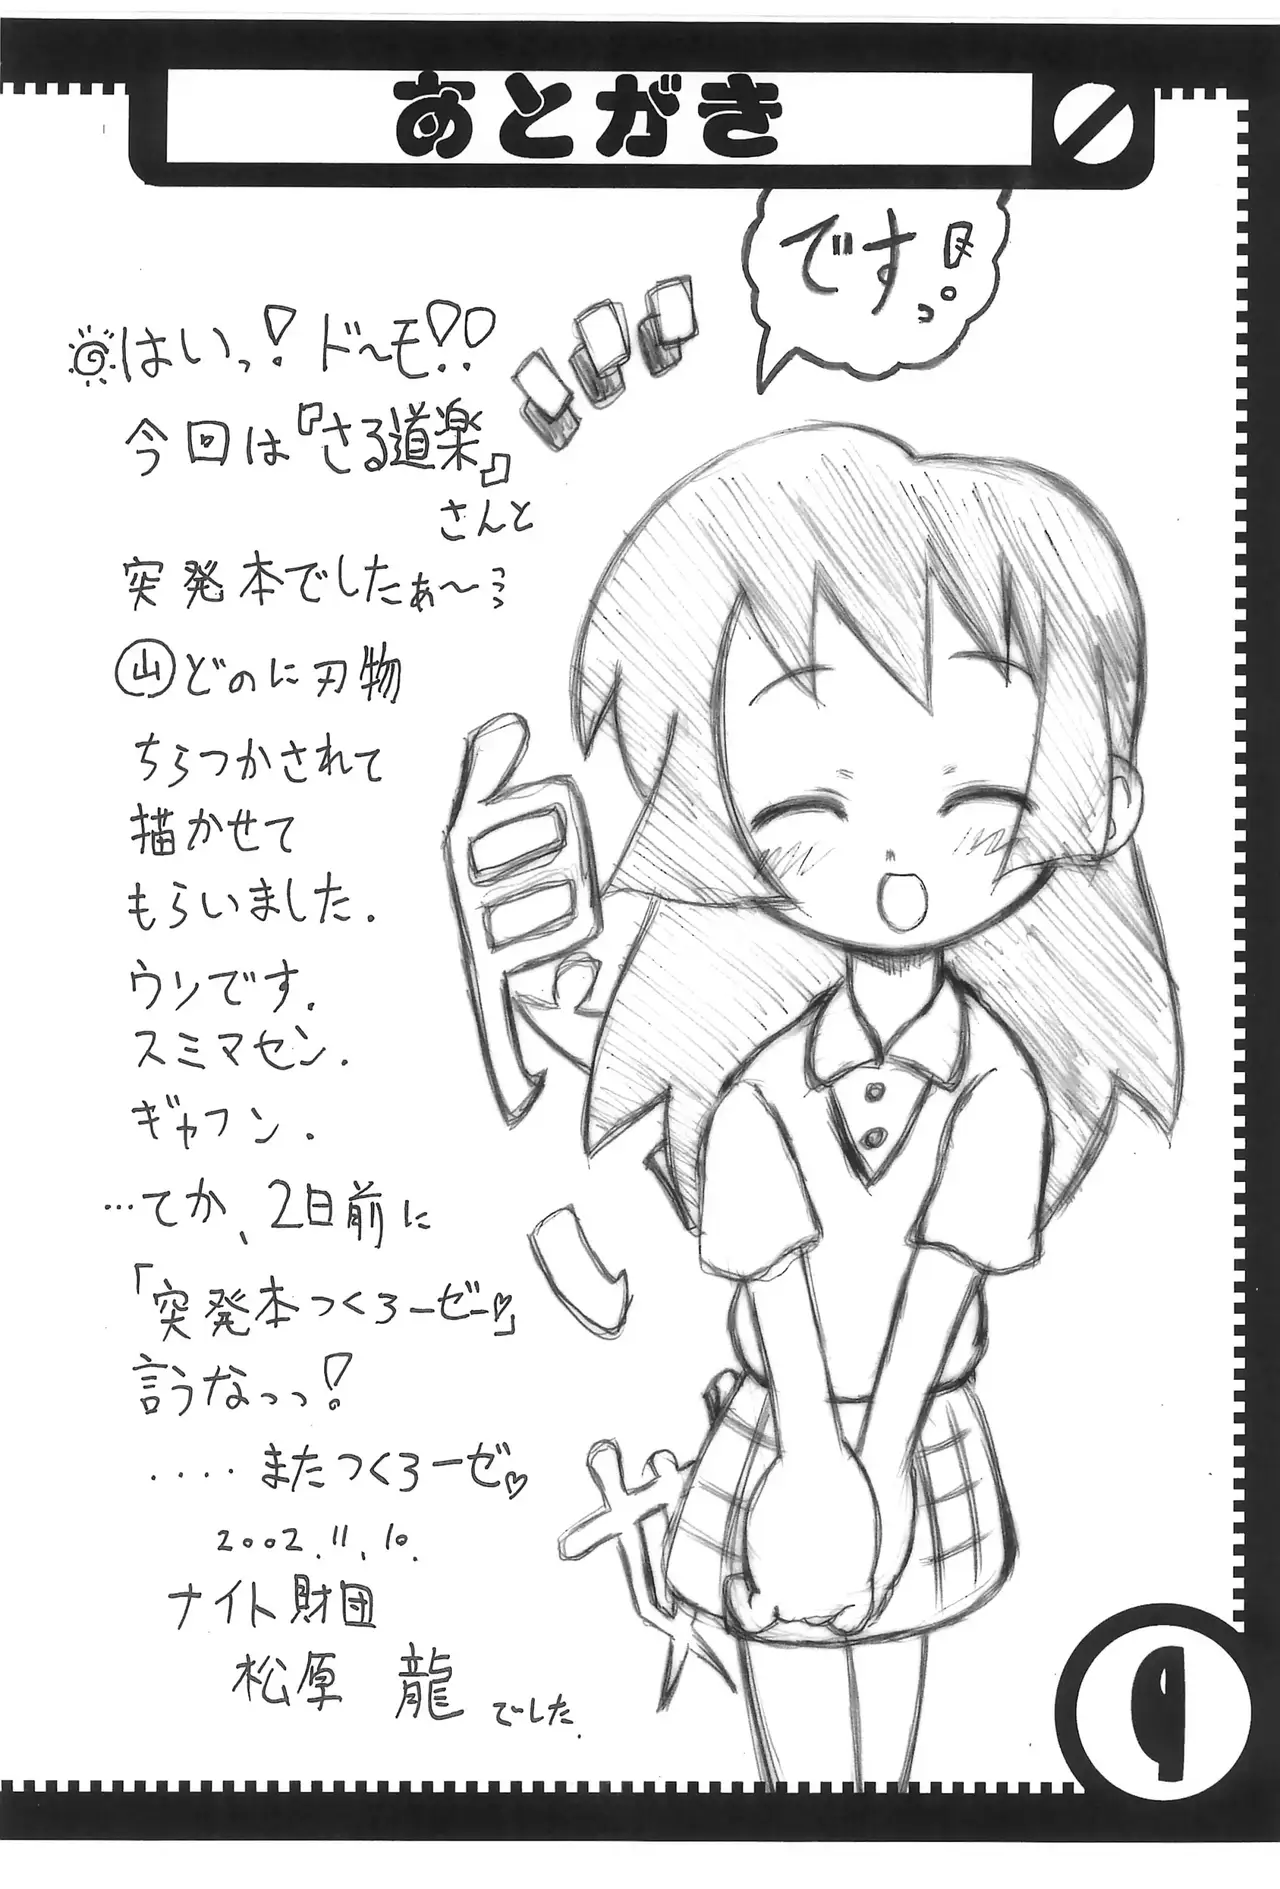 あとがき
です。
はいっ!ド〜モ!!
今回は『さる道楽』
さんと
突発本でしたぁ〜…
㊤どのに刃物
ちらつかされて
描かせて
もらいました.
ウソです.
スミマセン.
ギャフン.
…てか、2日前に
「突発本つくろーぜー♡」
言うなっっ!
‥‥またつくろーぜ♡
2002.11.10.
ナイト財団
松原 龍 でした.
9